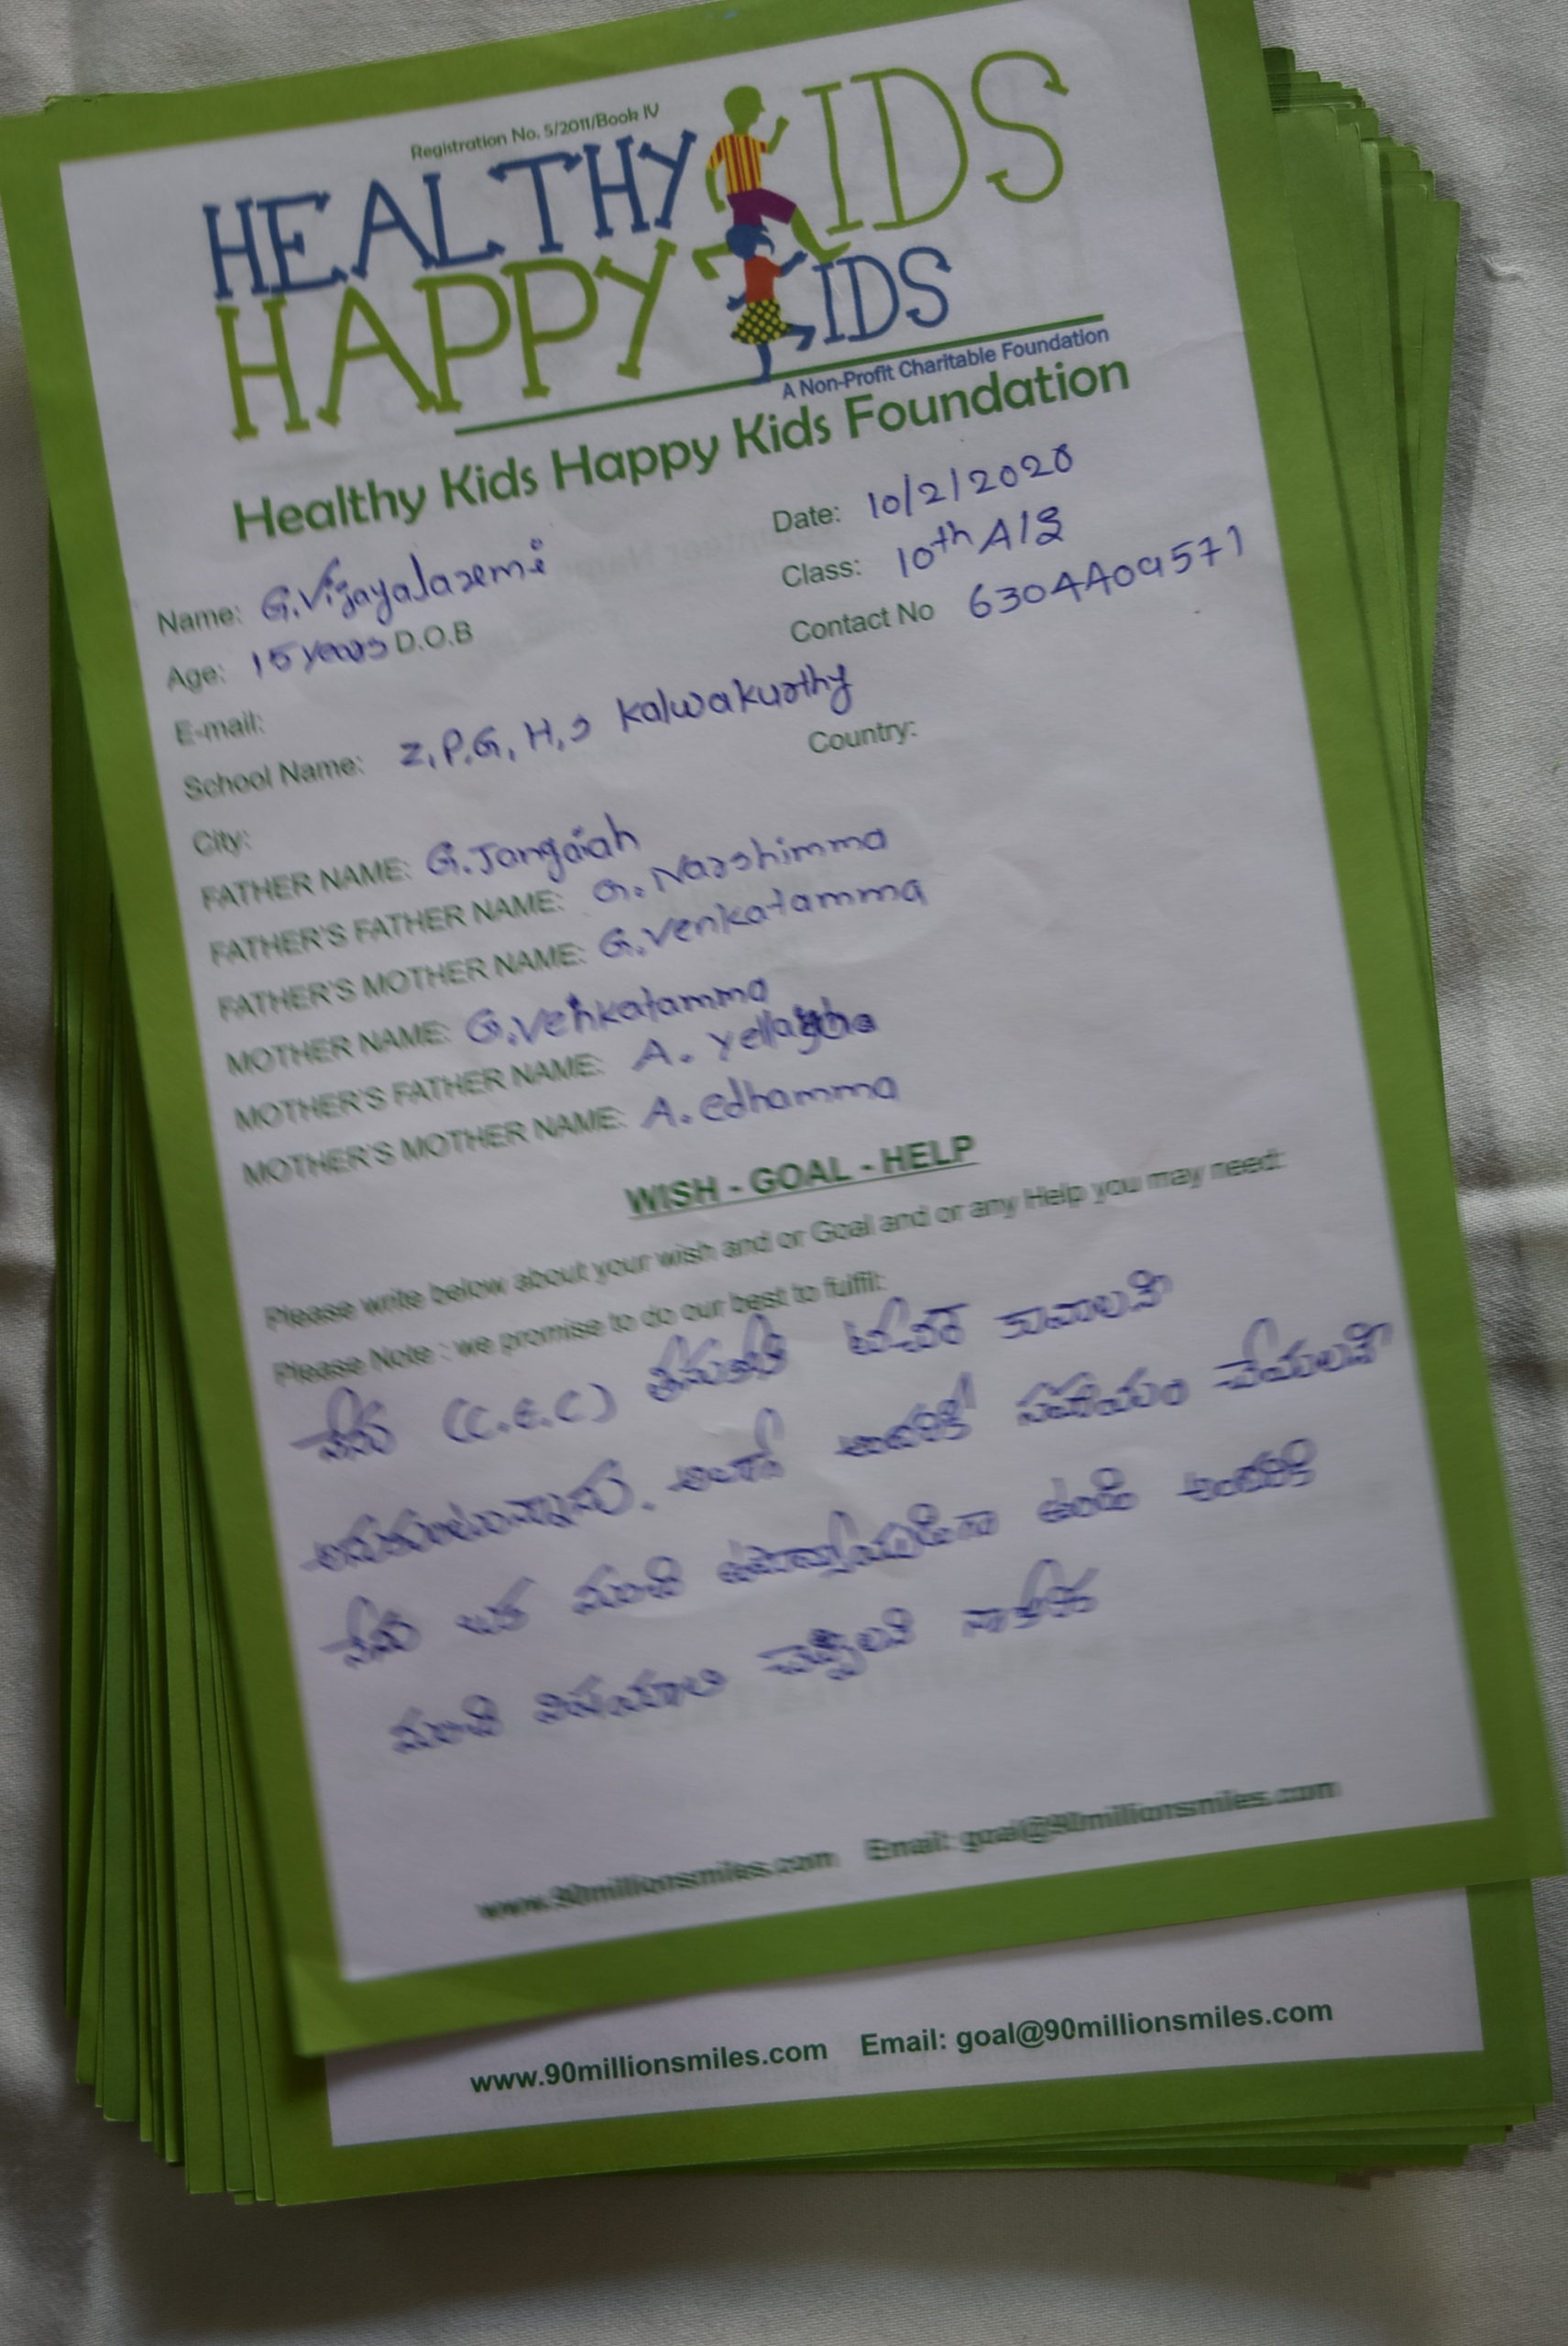 Registration No. 5/2011/Book IV
HEALTHY KIDS
HAPPY KIDS
A Non-Profit Charitable Foundation
Healthy Kids Happy Kids Foundation
Date: 10/2/2020
Name: G.Vijayalaxmi
Class: 10th A/S
Age: 15 years D.O.B
Contact No 6304409571
E-mail:
School Name: Z,P.G,H,S Kalwakurthy
City:
Country:
FATHER NAME: G.Jangaiah
FATHER'S FATHER NAME: G. Narshimma
FATHER'S MOTHER NAME: G.Venkatamma
MOTHER NAME: G.Venkatamma
MOTHER'S FATHER NAME: A.
MOTHER'S MOTHER NAME: A. edhamma
WISH - GOAL - HELP
Please write below about your wish and or Goal and or any Help you may need:
Please Note : we promise to do our best to fulfil:
నేను (C.E.C) తీసుకొని టీచర్ కావాలని
అనుకుంటున్నాను. అలాగే అందరికీ సహాయం చేయాలని
నేను ఒక మంచి ఉపాధ్యాయుడిగా ఉండి అందరికి
మంచి విషయాలు చెప్పాలని నా కోరిక
www.90millionsmiles.com Email: goal@90millionsmiles.com
www.90millionsmiles.com Email: goal@90millionsmiles.com